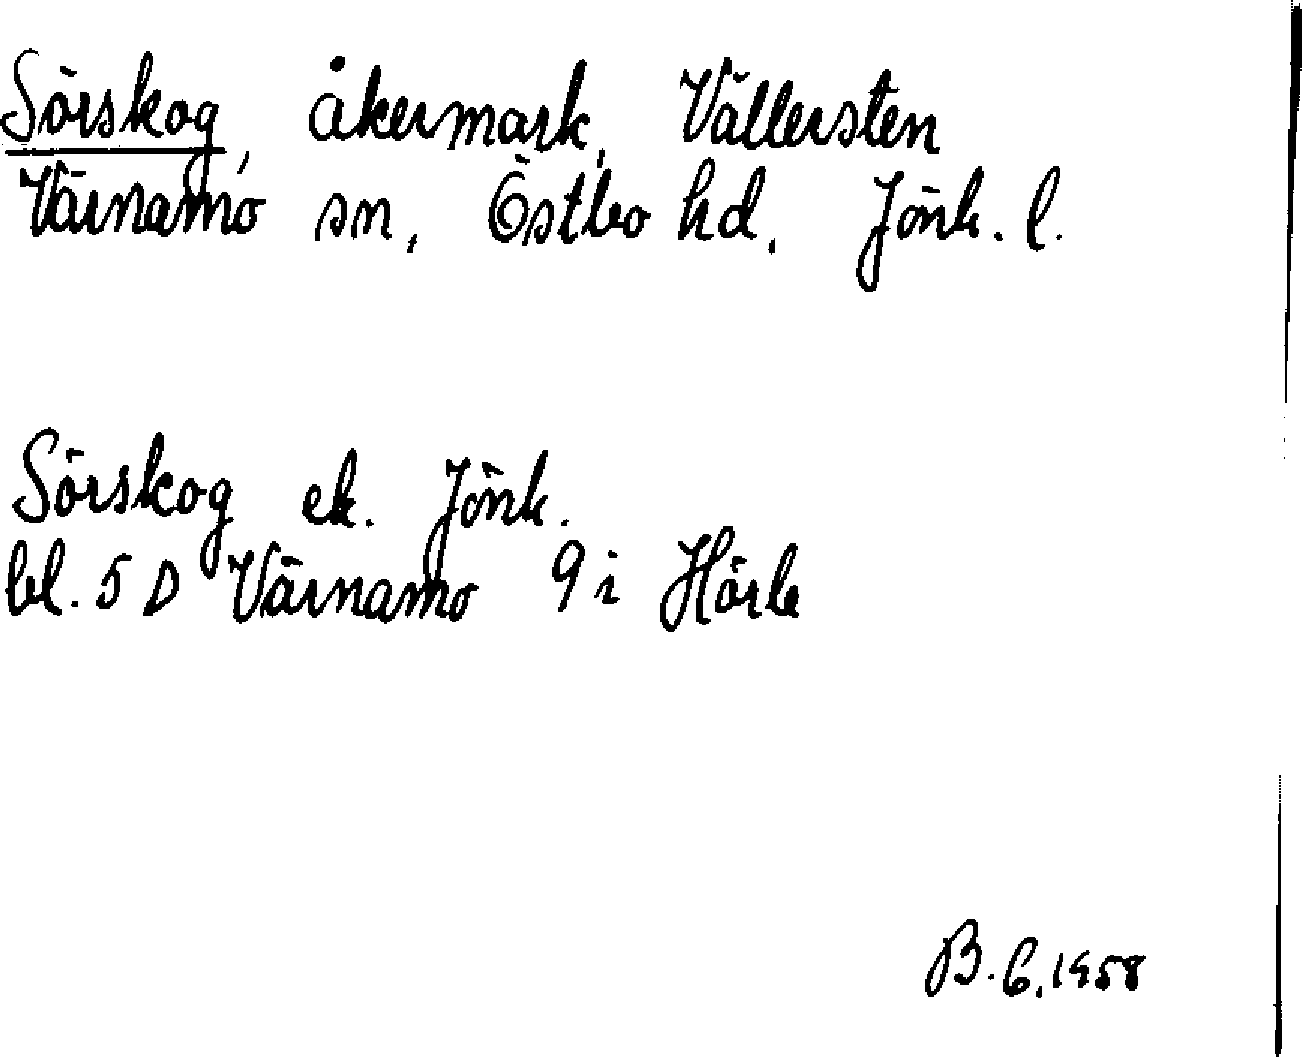 Sörskog, åkermark, Vällersten
Värnamo sn, Östbo hd, Jönk. l.
Sörskog ek. Jönk.
bl. 5 D Värnamo 9 i Hörle
B. G. 1958